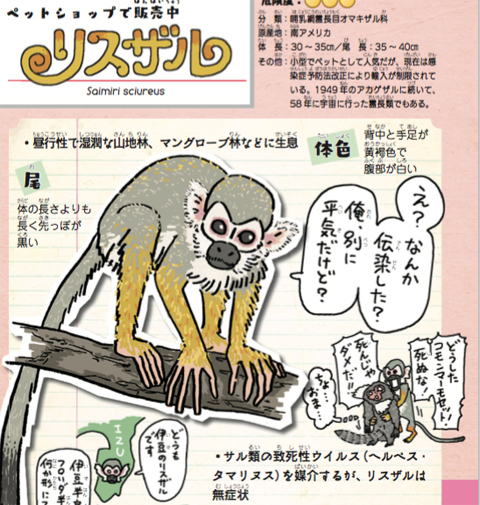 ペットショップで販売中
リスザル
Saimiri sciureus
危険度：
分類：哺乳綱霊長目オマキザル科
原産地：南アメリカ
体長：30～35cm／尾長：35～40cm
その他：小型でペットとして人気だが、現在は感
染症予防法改正により輸入が制限されて
いる。1949年のアカゲザルに続いて、
58年に宇宙に行った霊長類でもある。
・昼行性で湿潤な山地林、マングローブ林などに生息
体色
背中と手足が
黄褐色で
腹部が白い
尾
体の長さよりも
長く先っぽが
黒い
え？なんか
伝染した？
俺、別に
平気だけど？
どうした
コモンマーモセット！
死ぬな！
死んじゃ
ダメだ！！
ちょ…
おま…
IZU
どうも
伊豆のリスザル
です
伊豆半島
・サル類の致死性ウイルス（ヘルペス・
タマリヌス）を媒介するが、リスザルは
無症状